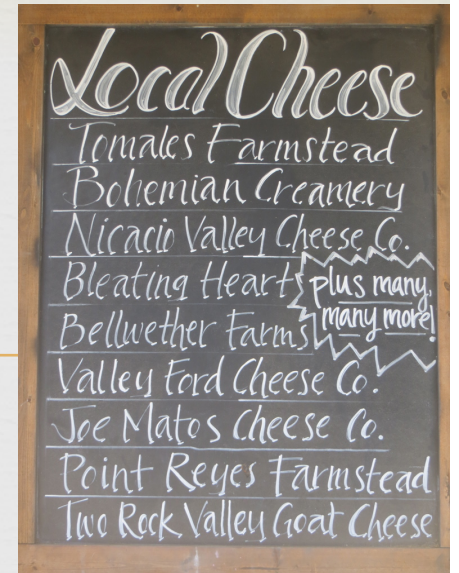 Local Cheese
Tomales Farmstead
Bohemian Creamery
Nicacio Valley Cheese Co.
Bleating Heart
plus many,
many more!
Bellwether Farms
Valley Ford Cheese Co.
Joe Matos Cheese Co.
Point Reyes Farmstead
Two Rock Valley Goat Cheese